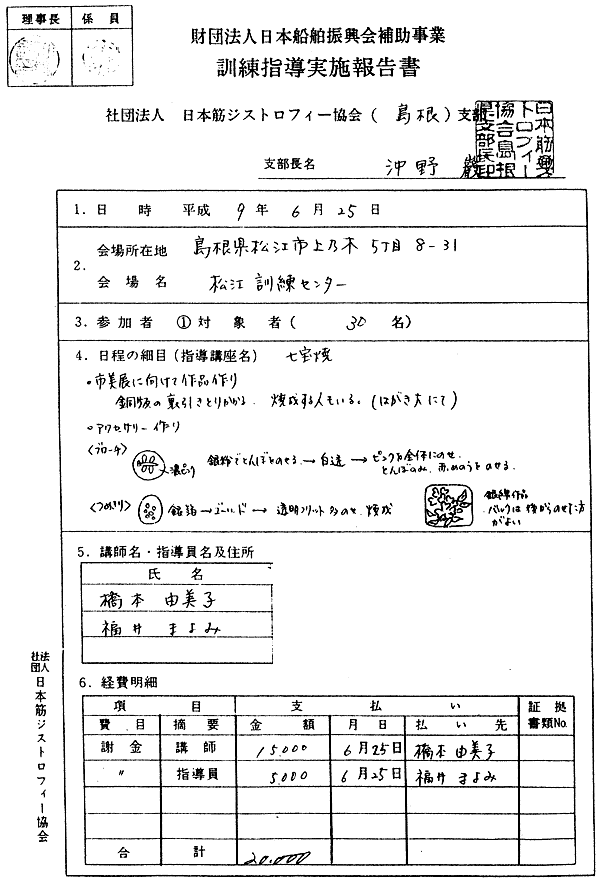 理事長 係員
財団法人日本船舶振興会補助事業
訓練指導実施報告書
社団法人 日本筋ジストロフィー協会(島根)支部
日本筋ジストロフィー協会島根県支部長印
支部長名 沖野 巖
1.日 時 平成 9年 6月 25日
2. 会場所在地 島根県松江市上乃木 5丁目 8-31
会場名 松江訓練センター
3.参加者 ①対象者( 30名)
4.日程の細目(指導講座名) 七宝焼
・市美展に向けて作品作り
銅板の裏引きとりかかる. 焼成する人もいる。(はがき大にて)
・アクセサリー作り
〈ブローチ〉
銀粉でとんぼをのせる → 白透 → ピンクを全体にのせ、
とんぼのみ、赤、めのうをのせる。
〈つめきり〉 銀箔→ゴールド → 透明フリットをのせ 焼成
銀線作品
バックは後からのせた方
がよい
5.講師名・指導員名及住所
氏 名
橋本 由美子
福井 まよみ
6.経費明細
項目 支払い 証拠書類No.
費目 摘要 金額 月日 払い先
謝金 講師 15,000 6月25日 橋本 由美子
〃 指導員 5,000 6月25日 福井 まよみ
合計 20,000
社団法人 日本筋ジストロフィー協会